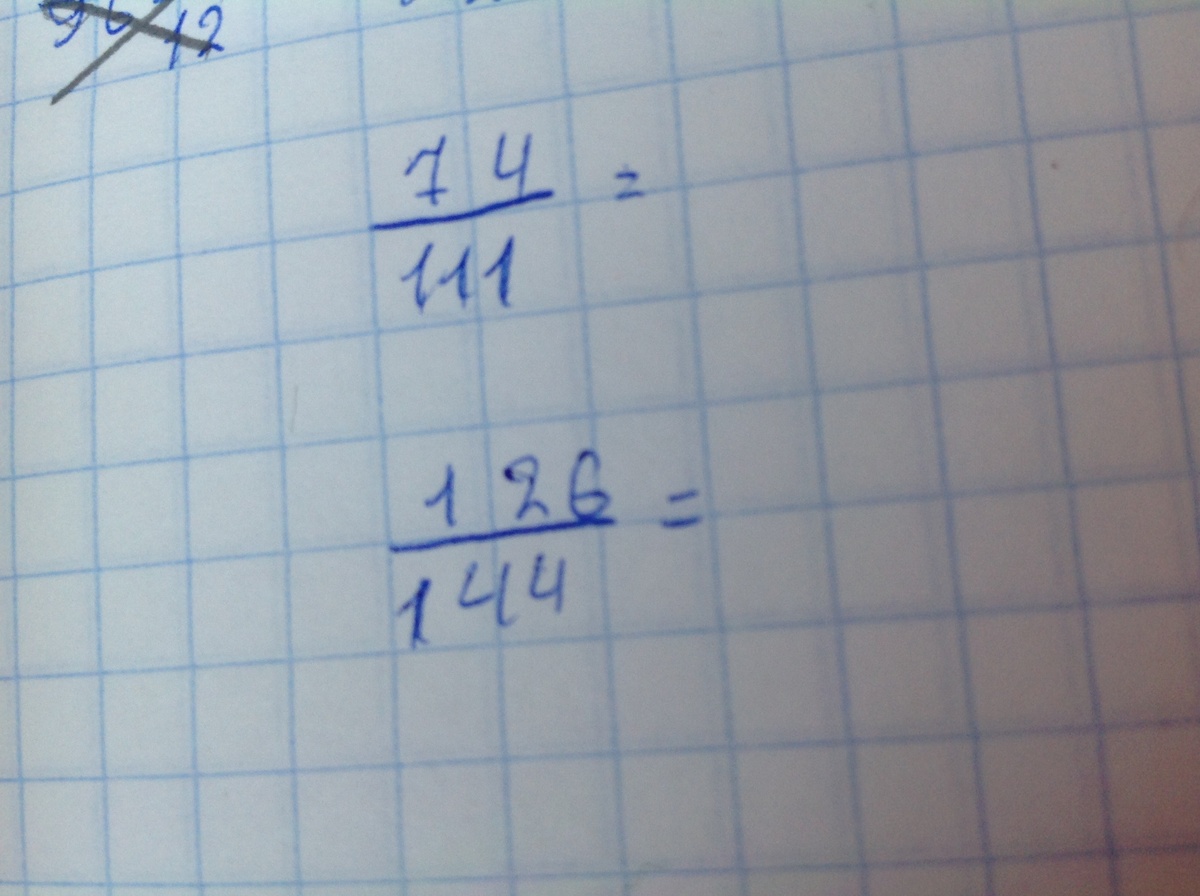 12
74 =
111
126 =
144